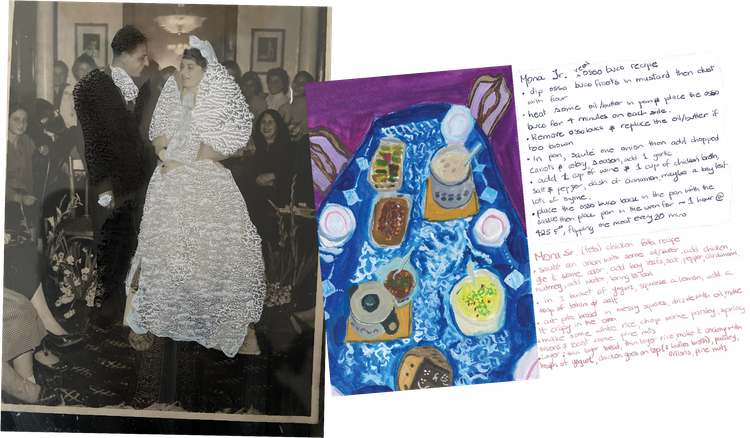 Mona Jr. veal osso buco recipe
• dip osso buco fillets in mustard then dust
with flour
• heat some oil/butter in pan & place the osso
buco for 4 minutes on each side.
• Remove osso buco & replace the oil/butter if
too brown
• In pan, sauté one onion then add chopped
carrots & celery, season, add 1 garlic
• add 1 cup of wine & 1 cup of chicken broth,
salt & pepper, dash of cinnamon, maybe a bay leaf
lots of thyme.
• place the osso buco back in the pan with the
sauce then place pan in the oven for ~ 1 hour @
425 F°, flipping the meat every 20 mins
Mona Sr. (teta) chicken fatta recipe
• sauté an onion with some oil/butter, add chicken,
get some color, add bay leafs, salt, pepper, cardamom,
nutmeg, add water bring to boil
• in 1 bucket of yogurt, squeeze a lemon, add a
tbsp of tahini & salt
• cut pita bread in messy squares, drizzle with oil, make
it crispy in the oven
• make some white rice, chop some parsley, spring
onions & toast some pine nuts
• layer: thin layer bread, thin layer rice make it creamy with
heaps of yogurt, chicken goes on top (2 ladles broth), parsley,
onions, pine nuts